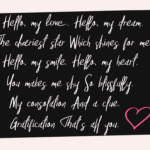 Hello, my love. Hello, my dream.
The dearest star Which shines for me
Hello, my smile. Hello, my heart.
You makes me shy So blissfully.
My consolation And a clue.
Gratification That's all you.